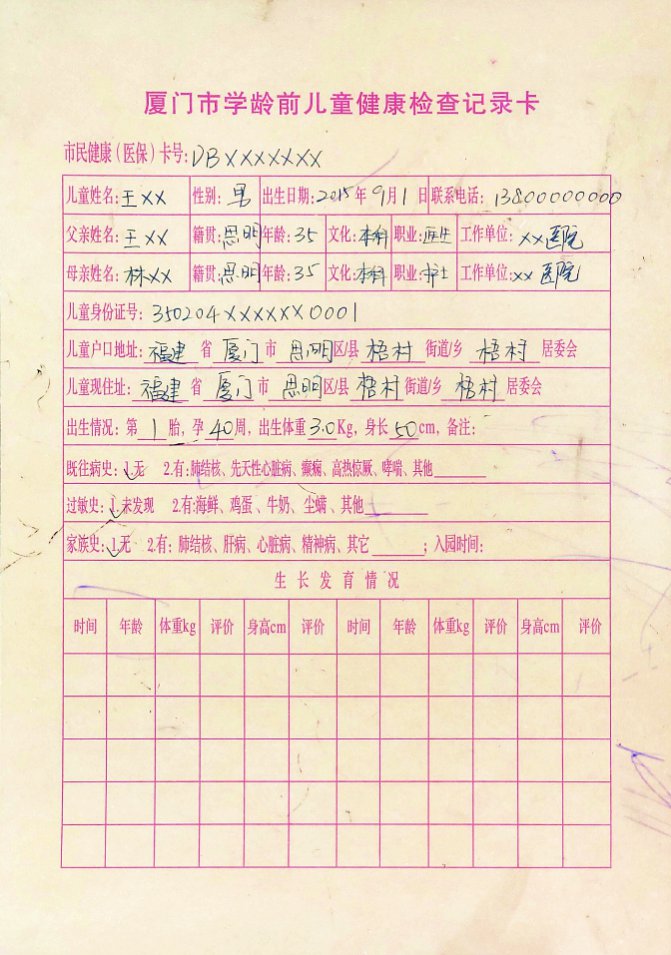 厦门市学龄前儿童健康检查记录卡
市民健康（医保）卡号：DBXXXXXXX
儿童姓名：王XX 性别：男 出生日期：2015年9月1日 联系电话：13800000000
父亲姓名：王XX 籍贯：思明 年龄：35 文化：本科 职业：医生 工作单位：XX医院
母亲姓名：林XX 籍贯：思明 年龄：35 文化：本科 职业：护士 工作单位：XX医院
儿童身份证号：350204XXXXXX0001
儿童户口地址：福建省厦门市思明区/县梧村街道/乡梧村居委会
儿童现住址：福建省厦门市思明区/县梧村街道/乡梧村居委会
出生情况：第1胎，孕40周，出生体重3.0Kg，身长50cm，备注：
既往病史：1.无 2.有：肺结核、先天性心脏病、癫痫、高热惊厥、哮喘、其他
过敏史：1.未发现 2.有：海鲜、鸡蛋、牛奶、尘螨、其他
家族史：1.无 2.有；肺结核、肝病、心脏病、精神病、其它______；入园时间：
生长发育情况
时间 年龄 体重kg 评价 身高cm 评价 时间 年龄 体重kg 评价 身高cm 评价